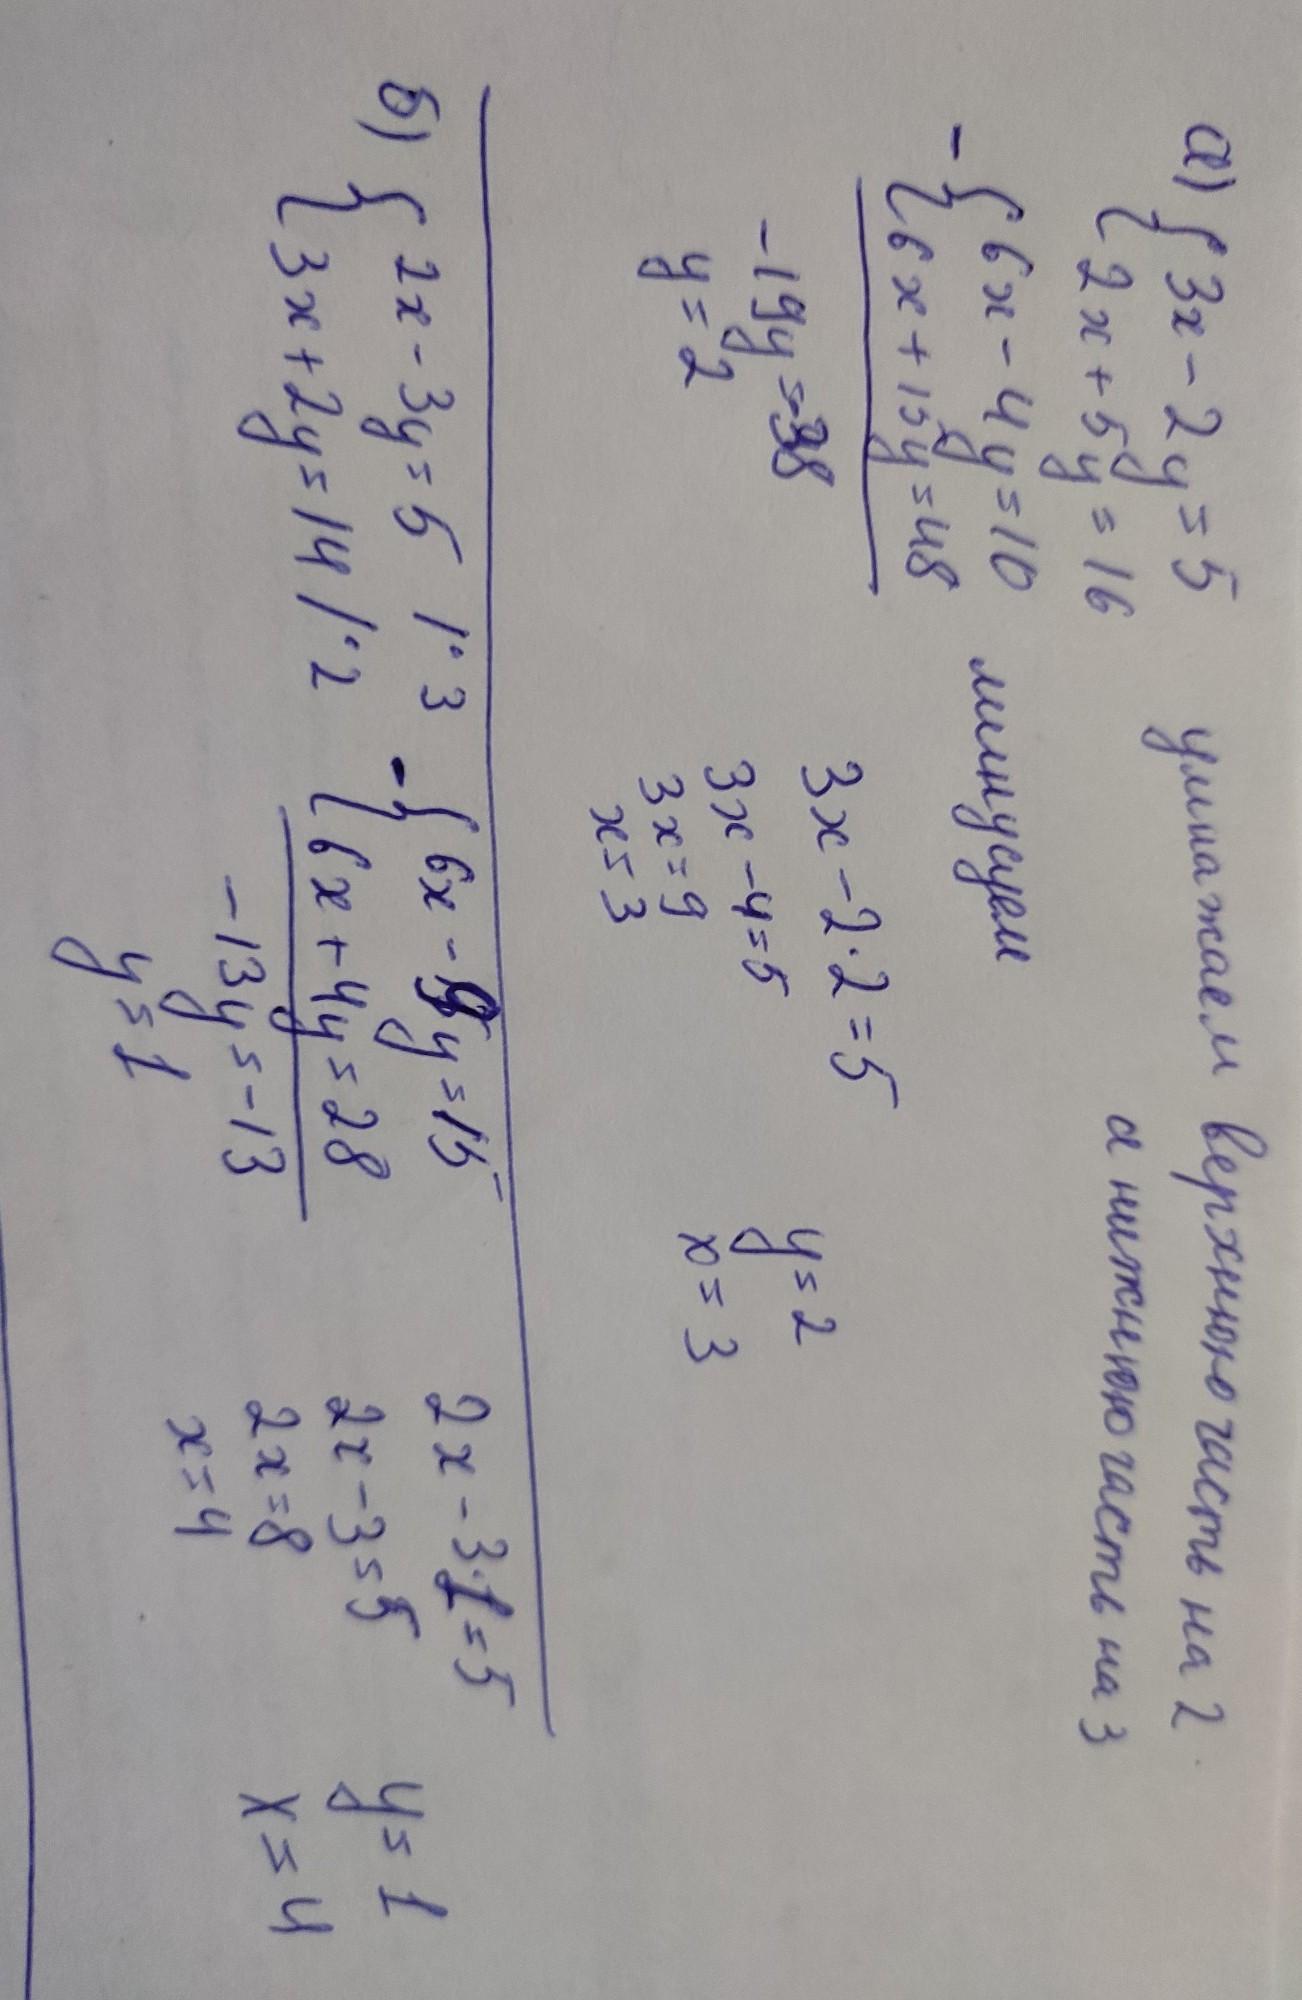 а) { 3x - 2y = 5 умножаем верхнюю часть на 2
{ 2x + 5y = 16 а нижнюю часть на 3
- { 6x - 4y = 10 минусуем
{ 6x + 15y = 48
-19y = -38
y = 2
3x - 2·2 = 5
3x - 4 = 5
3x = 9
x = 3
y = 2
x = 3
б) { 2x - 3y = 5 |·3
{ 3x + 2y = 14 |·2
- { 6x - 9y = 15
{ 6x + 4y = 28
-13y = -13
y = 1
2x - 3·1 = 5
2x - 3 = 5
2x = 8
x = 4
y = 1
x = 4